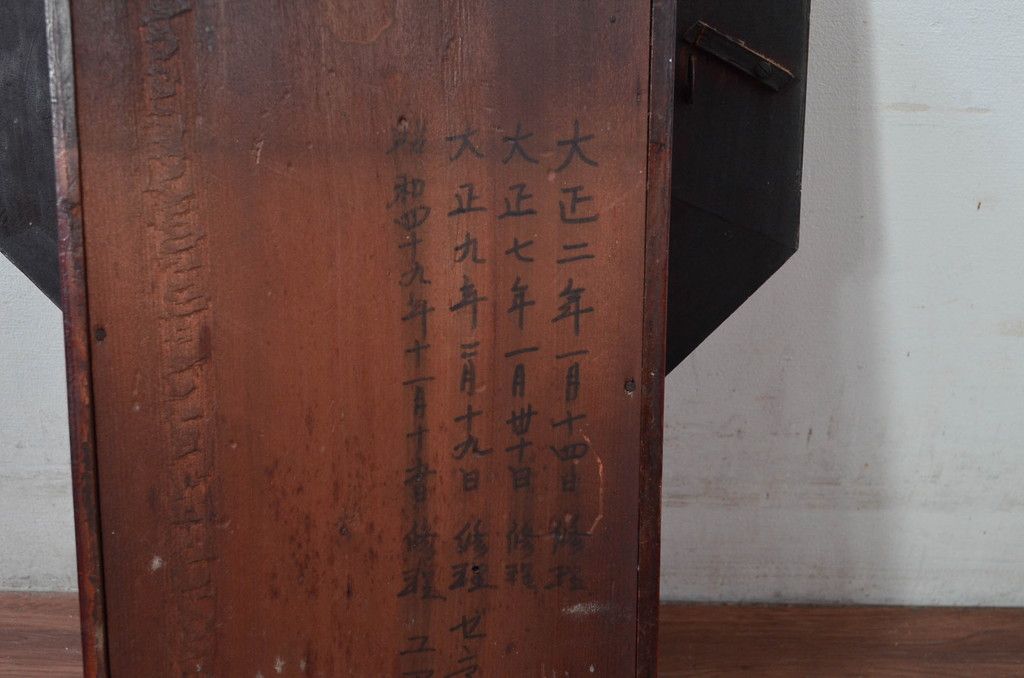 大正二年一月十四日 修理
大正七年一月廿十日 修理
大正九年二月十九日 修理 セ
昭和四十九年十一月十 修理 エ